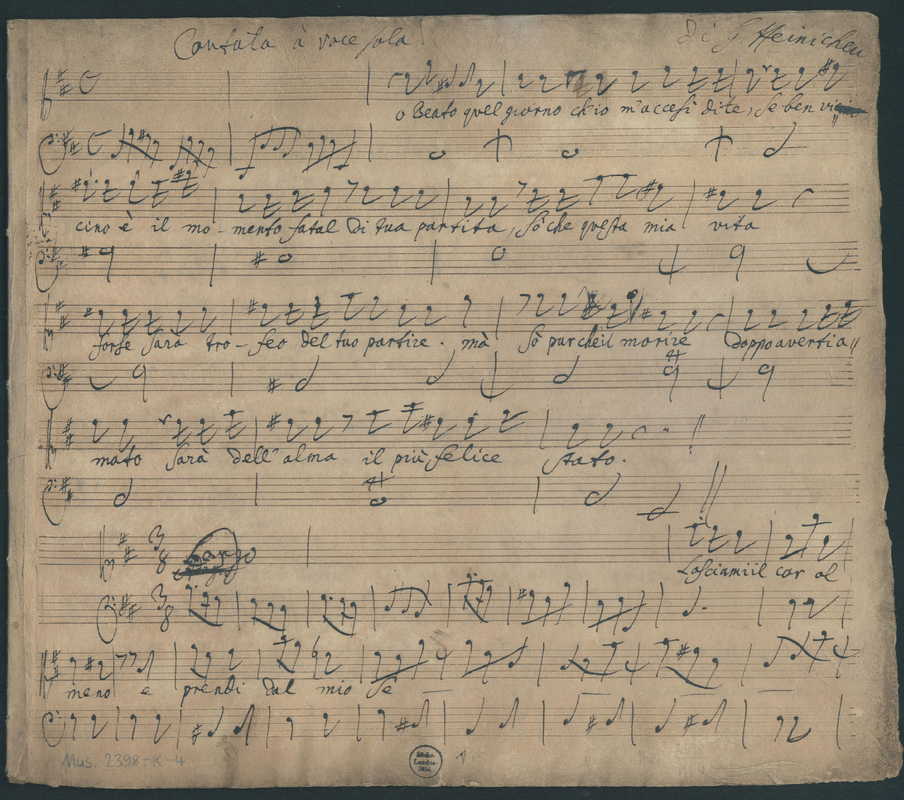 Cantata à voce sola
di G Heinichen
o Beato quel giorno ch'io m'accesi di te, se ben vi
cino è il mo-mento fatal di tua partita, sò che questa mia vita
forse sarà tro-feo del tuo partire. mà sò purche il morire doppo averti a//
mato sarà dell'alma il più felice stato.
Largo
Lasciami il cor al
meno e prendi dal mio se
Mus. 2398-K-4